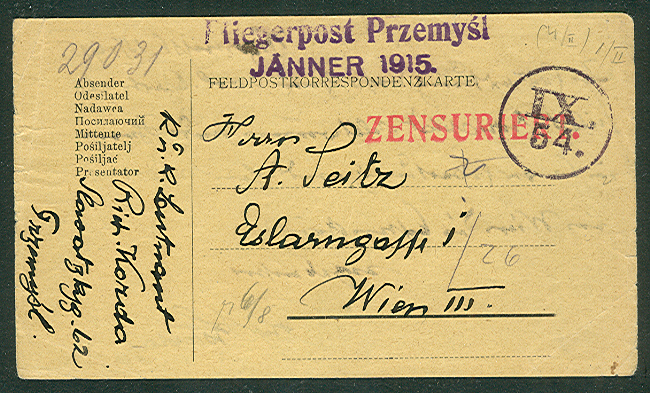 Fliegerpost Przemyśl
JÄNNER 1915.
FELDPOSTKORRESPONDENZKARTE
ZENSURIERT.
IX.
54.
29031
Absender
Odesílatel
Nadawca
Посилаючий
Mittente
Pošiljatelj
Pošiljač
Presentator
K. u. K. Leutnant
Rich. Korda
Przemyśl.
Herrn
A. Seitz
Eslarngasse
26
Wien III.